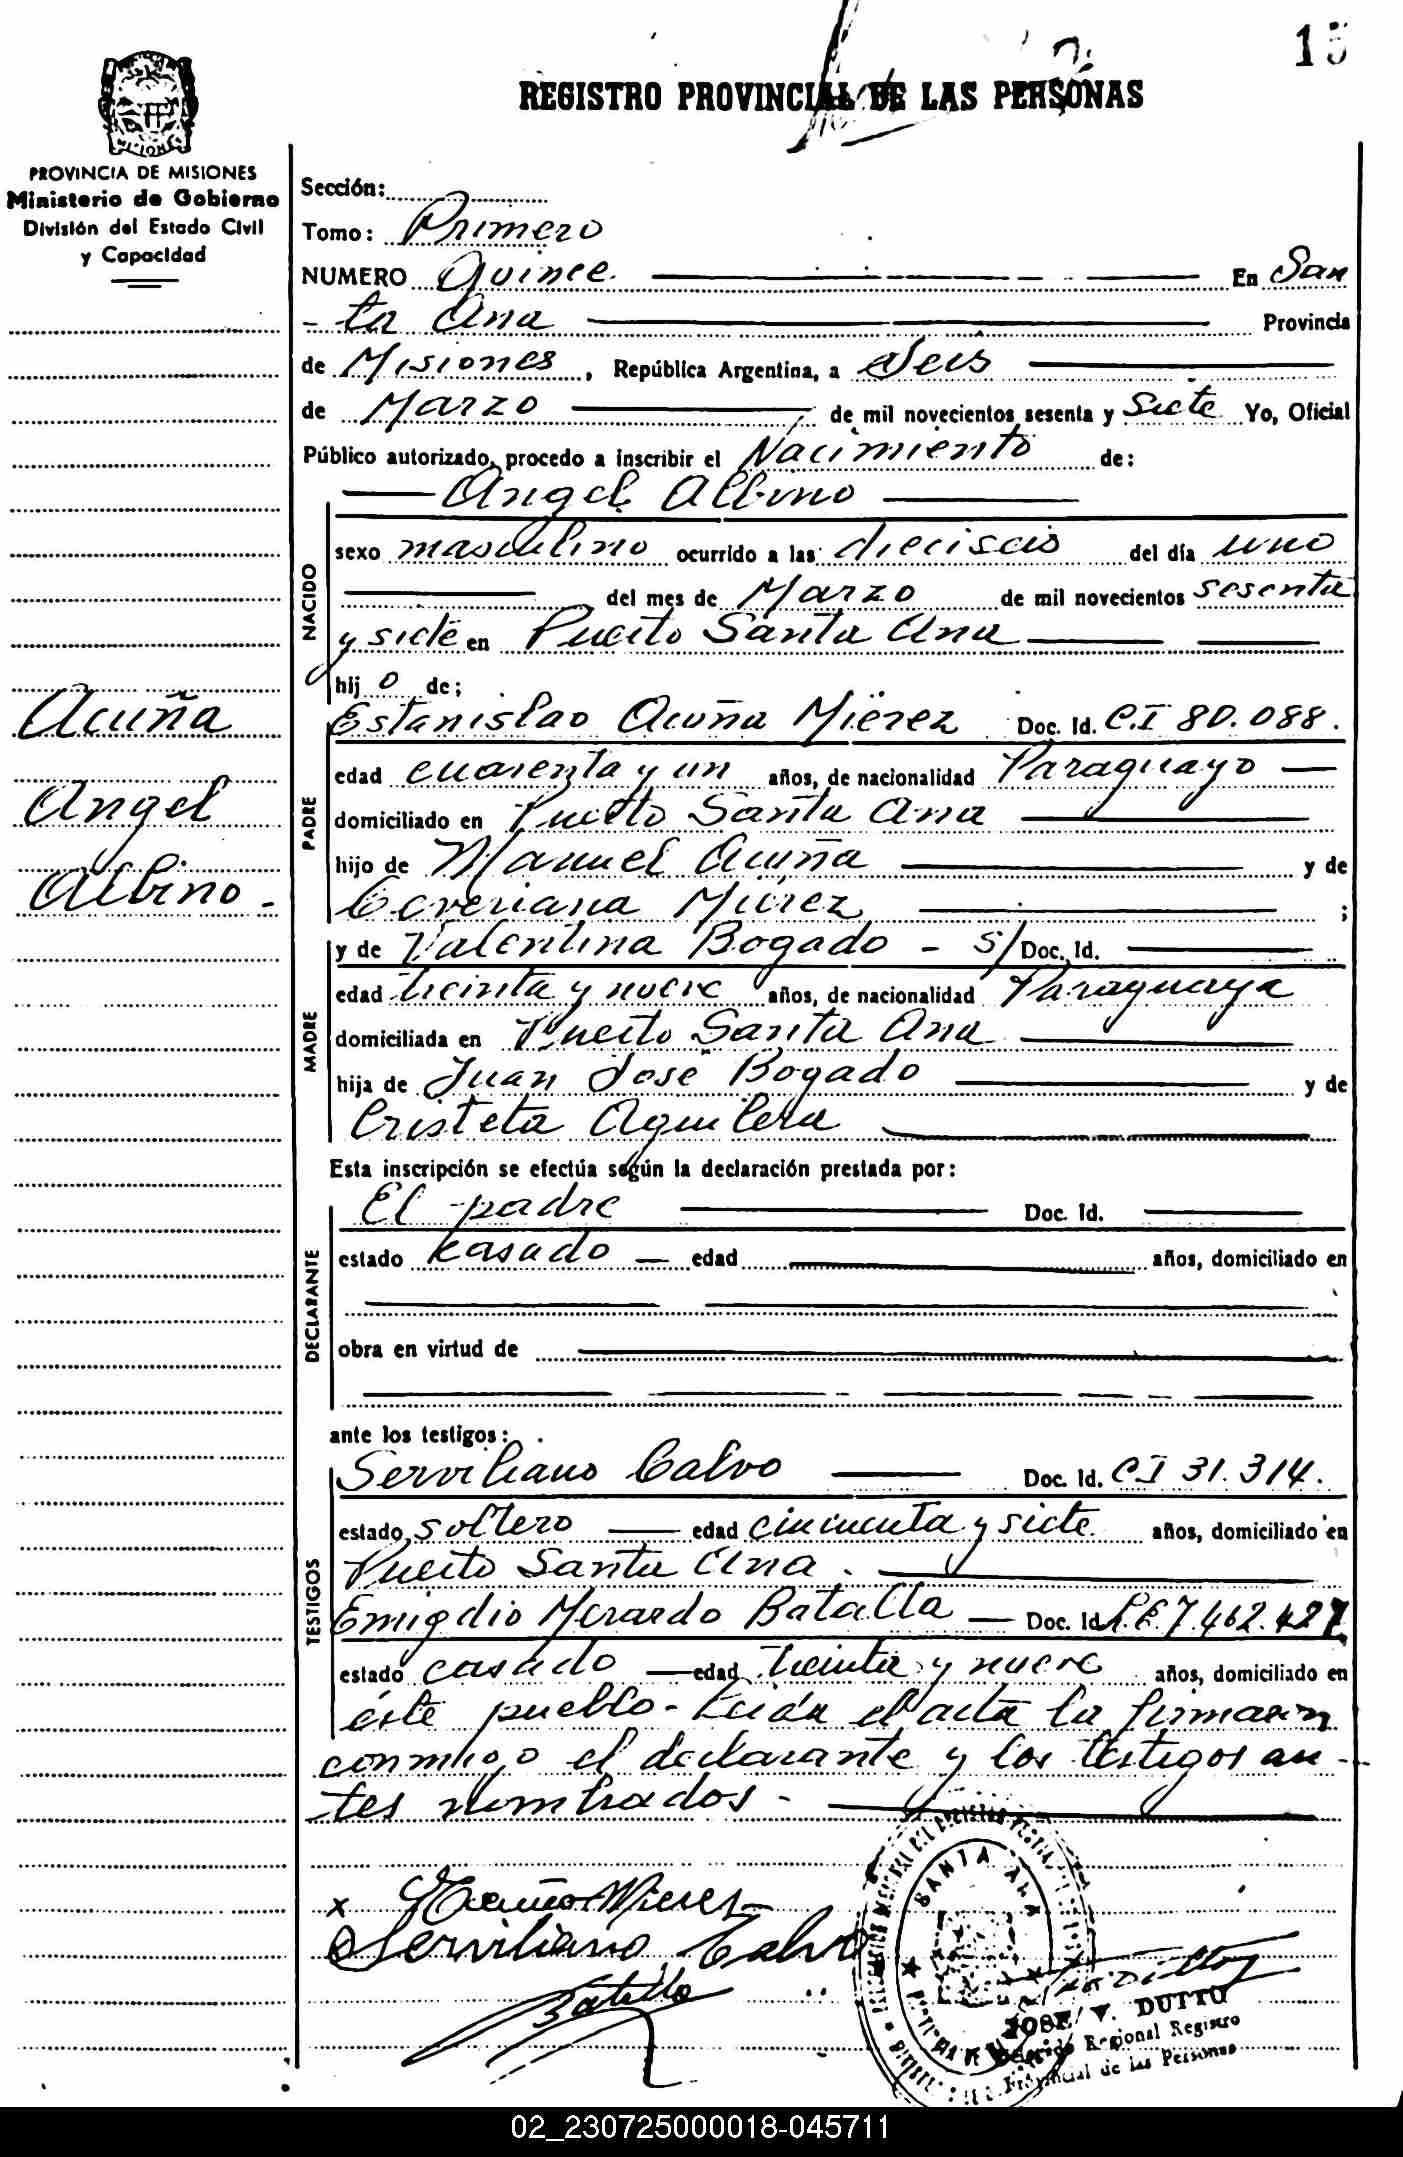 15
REGISTRO PROVINCIAL DE LAS PERSONAS
PROVINCIA DE MISIONES
Ministerio de Gobierno
División del Estado Civil
y Capacidad
Acuña
Angel
Albino -
Sección:
Tomo: Primero
NUMERO Quince. En San
- ta Ana Provincia
de Misiones, República Argentina, a Seis
de Marzo de mil novecientos sesenta y Siete Yo, Oficial
Público autorizado, procedo a inscribir el Nacimiento de:
Angel Albino
NACIDO
sexo masculino ocurrido a las dieciseis del día uno
del mes de Marzo de mil novecientos sesenta
y siete en Puerto Santa Ana
hijo de;
PADRE
Estanislao Acuña Mierez Doc. Id. C.I 80.088.
edad cuarenta y un años, de nacionalidad Paraguayo
domiciliado en Puerto Santa Ana
hijo de Manuel Acuña y de
Mierez ;
MADRE
y de Valentina Bogado - S/ Doc. Id.
edad treinta y nueve años, de nacionalidad Paraguaya
domiciliada en Puerto Santa Ana
hija de Juan José Bogado y de
Cristeta Aguilera
Esta inscripción se efectúa según la declaración prestada por:
DECLARANTE
El padre Doc. Id.
estado casado edad años, domiciliado en
obra en virtud de
ante los testigos:
TESTIGOS
Serviliano Calvo Doc. Id. CI 31.314.
estado soltero edad cincuenta y siete años, domiciliado en
Puerto Santa Ana.
Emigdio Batalla Doc. Id. 7.462.427
estado casado edad treinta y nueve años, domiciliado en
éste pueblo- Leida el acta la firmaron
conmigo el declarante y los testigos an-
tes nombrados.-
x Acuña Mieres
Serviliano Calvo
Batalla
SANTA ANA
JOSE V. DUTTO
Delegado Regional Registro
Provincial de las Personas
02_230725000018-045711